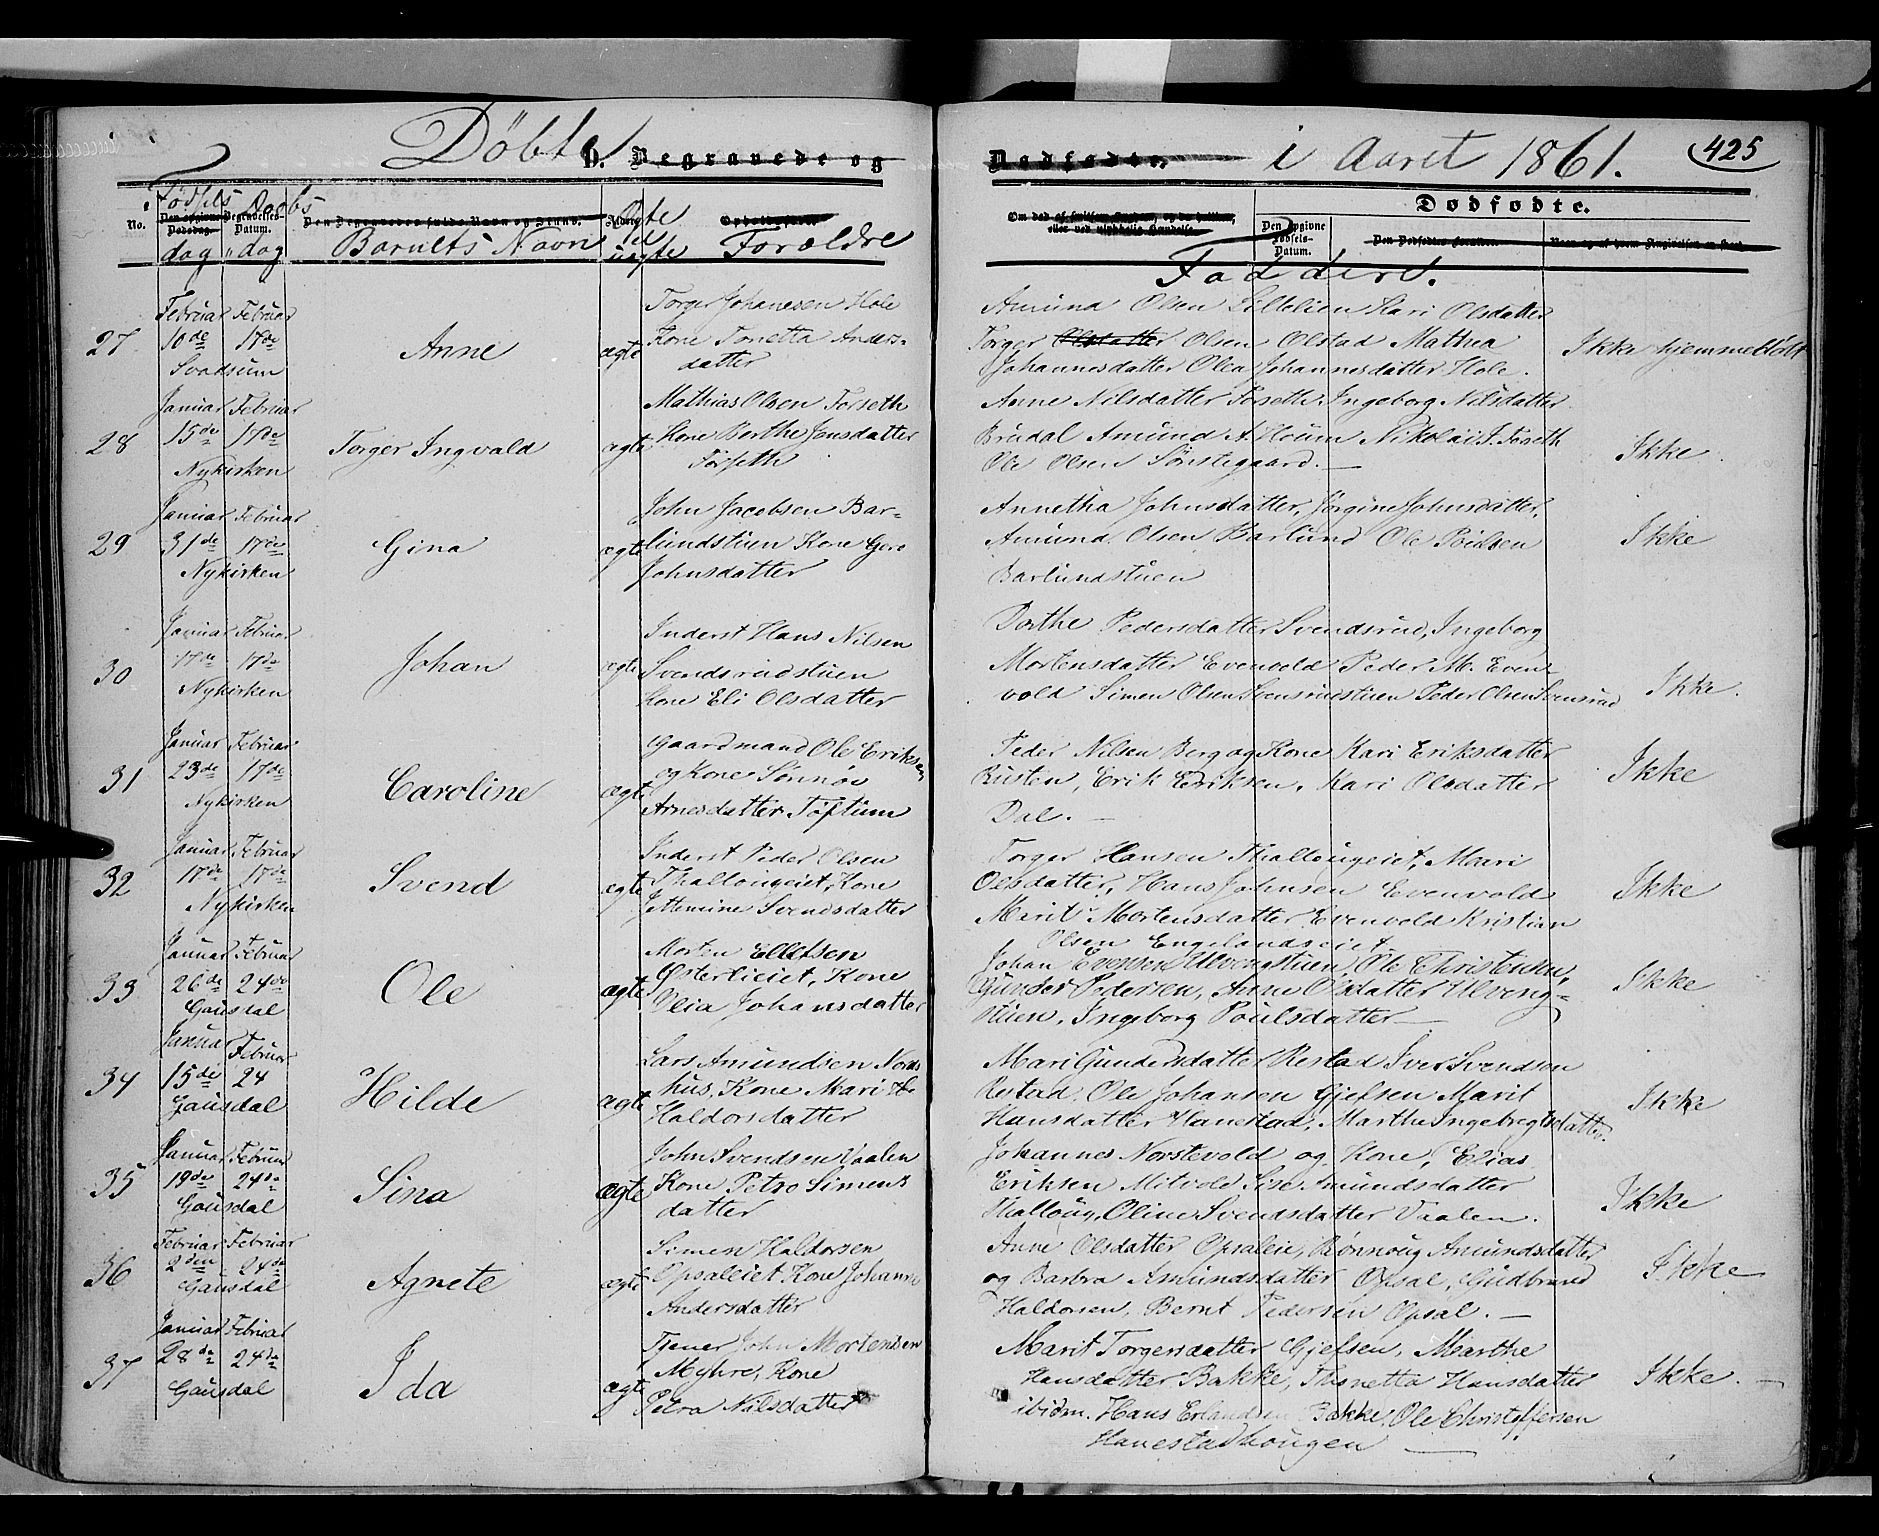 Döbte i Aaret 1861. 425
D. Begravede og Dødfødte.
No. Fødsels dag Daabs dag Barnets Navn Ægte ell uægte Forældre Faddere.
Den opgivne Dødsdag. Begravelses-Datum. Den Begravedes fulde Navn og Stand. Opholdssted.
Dødfødte.
Den opgivne Fødsels-Datum.
Februar Februar Torger Johanesen Hole Amund Olsen Lillelien Kari Olsdatter
27 10de 17de Anne ægte Kone Tonetta Anders- Torger Olsdatter Olsen Olstad Mathea Ikke hjemmedøbt
Svadsum datter Johannesdatter Olea Johannesdatter Hole.
Januar Februar Mathias Olsen Forseth Anne Nilsdatter Forseth. Ingeborg Nilsdatter
28 15de 17de Torger Ingvald ægte Kone Berthe Jensdatter Brudal Amund A. Houm Nikolai J. Forseth Ikke.
Nykirken Forseth Ole Olsen Sønstegaard. —
Januar Februar John Jacobsen Bar- Annetha Johnsdatter, Jørgine Johnsdatter.
29 31de 17de Gina ægte lundstuen Kone Gero Amund Olsen Barlund Ole Poulsen Ikke
Nykirken Johnsdatter Barlundstuen
Januar Februar Inderst Hans Nilsen Dorthe Pedersdatter Svendsrud, Ingeborg
30 17de 17de Johan ægte Svendsrudstuen Mortensdatter Evenvold Peder M. Even-
Nykirken Kone Eli Olsdatter vold Simen Olsen Svensrudstuen Peder Olsen Svensrud Ikke.
Januar Februar Gaardmand Ole Eriksen Peder Nilsen Berg og Kone Kari Eriksdatter
31 23de 17de Caroline ægte og Kone Sønnøv Rusten, Erik Eriksen, Kari Olsdatter Ikke
Nykirken Arnesdatter Toftum Dal. —
Januar Februar Inderst Peder Olsen Torger Hansen Thallougeiet, Mari
32 17de 17de Svend ægte Thallougeiet, Kone Olsdatter, Hans Johnsen Evenvold Ikke
Nykirken Jettemine Svendsdatter Marit Mortensdatter Evenvold Kristian
Olsen Engelandseiet
Januar Februar Morten Ellefsen Johan Evensen Ulvengstuen, Ole Christensen,
33 26de 24de Ole ægte Østerlieiet, Kone Gunder Pedersen, Anne Olsdatter Ulveng- Ikke
Gausdal Olia Johansdatter stuen, Ingeborg Poulsdatter —
Januar Februar Lars Amundsen Nord- Mari Gundersdatter Restad Iver Svendsen
34 15de 24 Hilde ægte hus, Kone Mari Restad. Ole Johansen Gjefsen Marit Ikke
Gausdal Haldorsdatter Hansdatter Hanestad, Marthe Ingebregtsdatter.
Januar Februar John Svendsen Vaalen Johannes Norstevold og Kone, Elias
35 19de 24de Sina ægte Kone Petro Simens Eriksen Mitvold Sise Amundsdatter Ikke
Gausdal datter Halloug, Oline Svendsdatter Vaalen.
Februar Februar Simen Haldorsen Anne Olsdatter Opsaleie, Rønnoug Amundsdatter
36 2den 24de Agnete ægte Opsaleiet Kone Johanne og Barbra Amundsdatter Opsal, Gudbrand Ikke
Gausdal Andersdatter Haldorsen, Bernt Pedersen Opsal. —
Januar Februar Tjener John Mortensen Marit Torgersdatter Gjefsen, Marthe
37 28de 24de Ida ægte Myhre, Kone Hansdatter Bakke, Thonetta Hansdatter Ikke. —
Gausdal Petra Nilsdatter ibidm. Hans Erlandsen Bakke, Ole Christoffersen
Hanestadhougen —